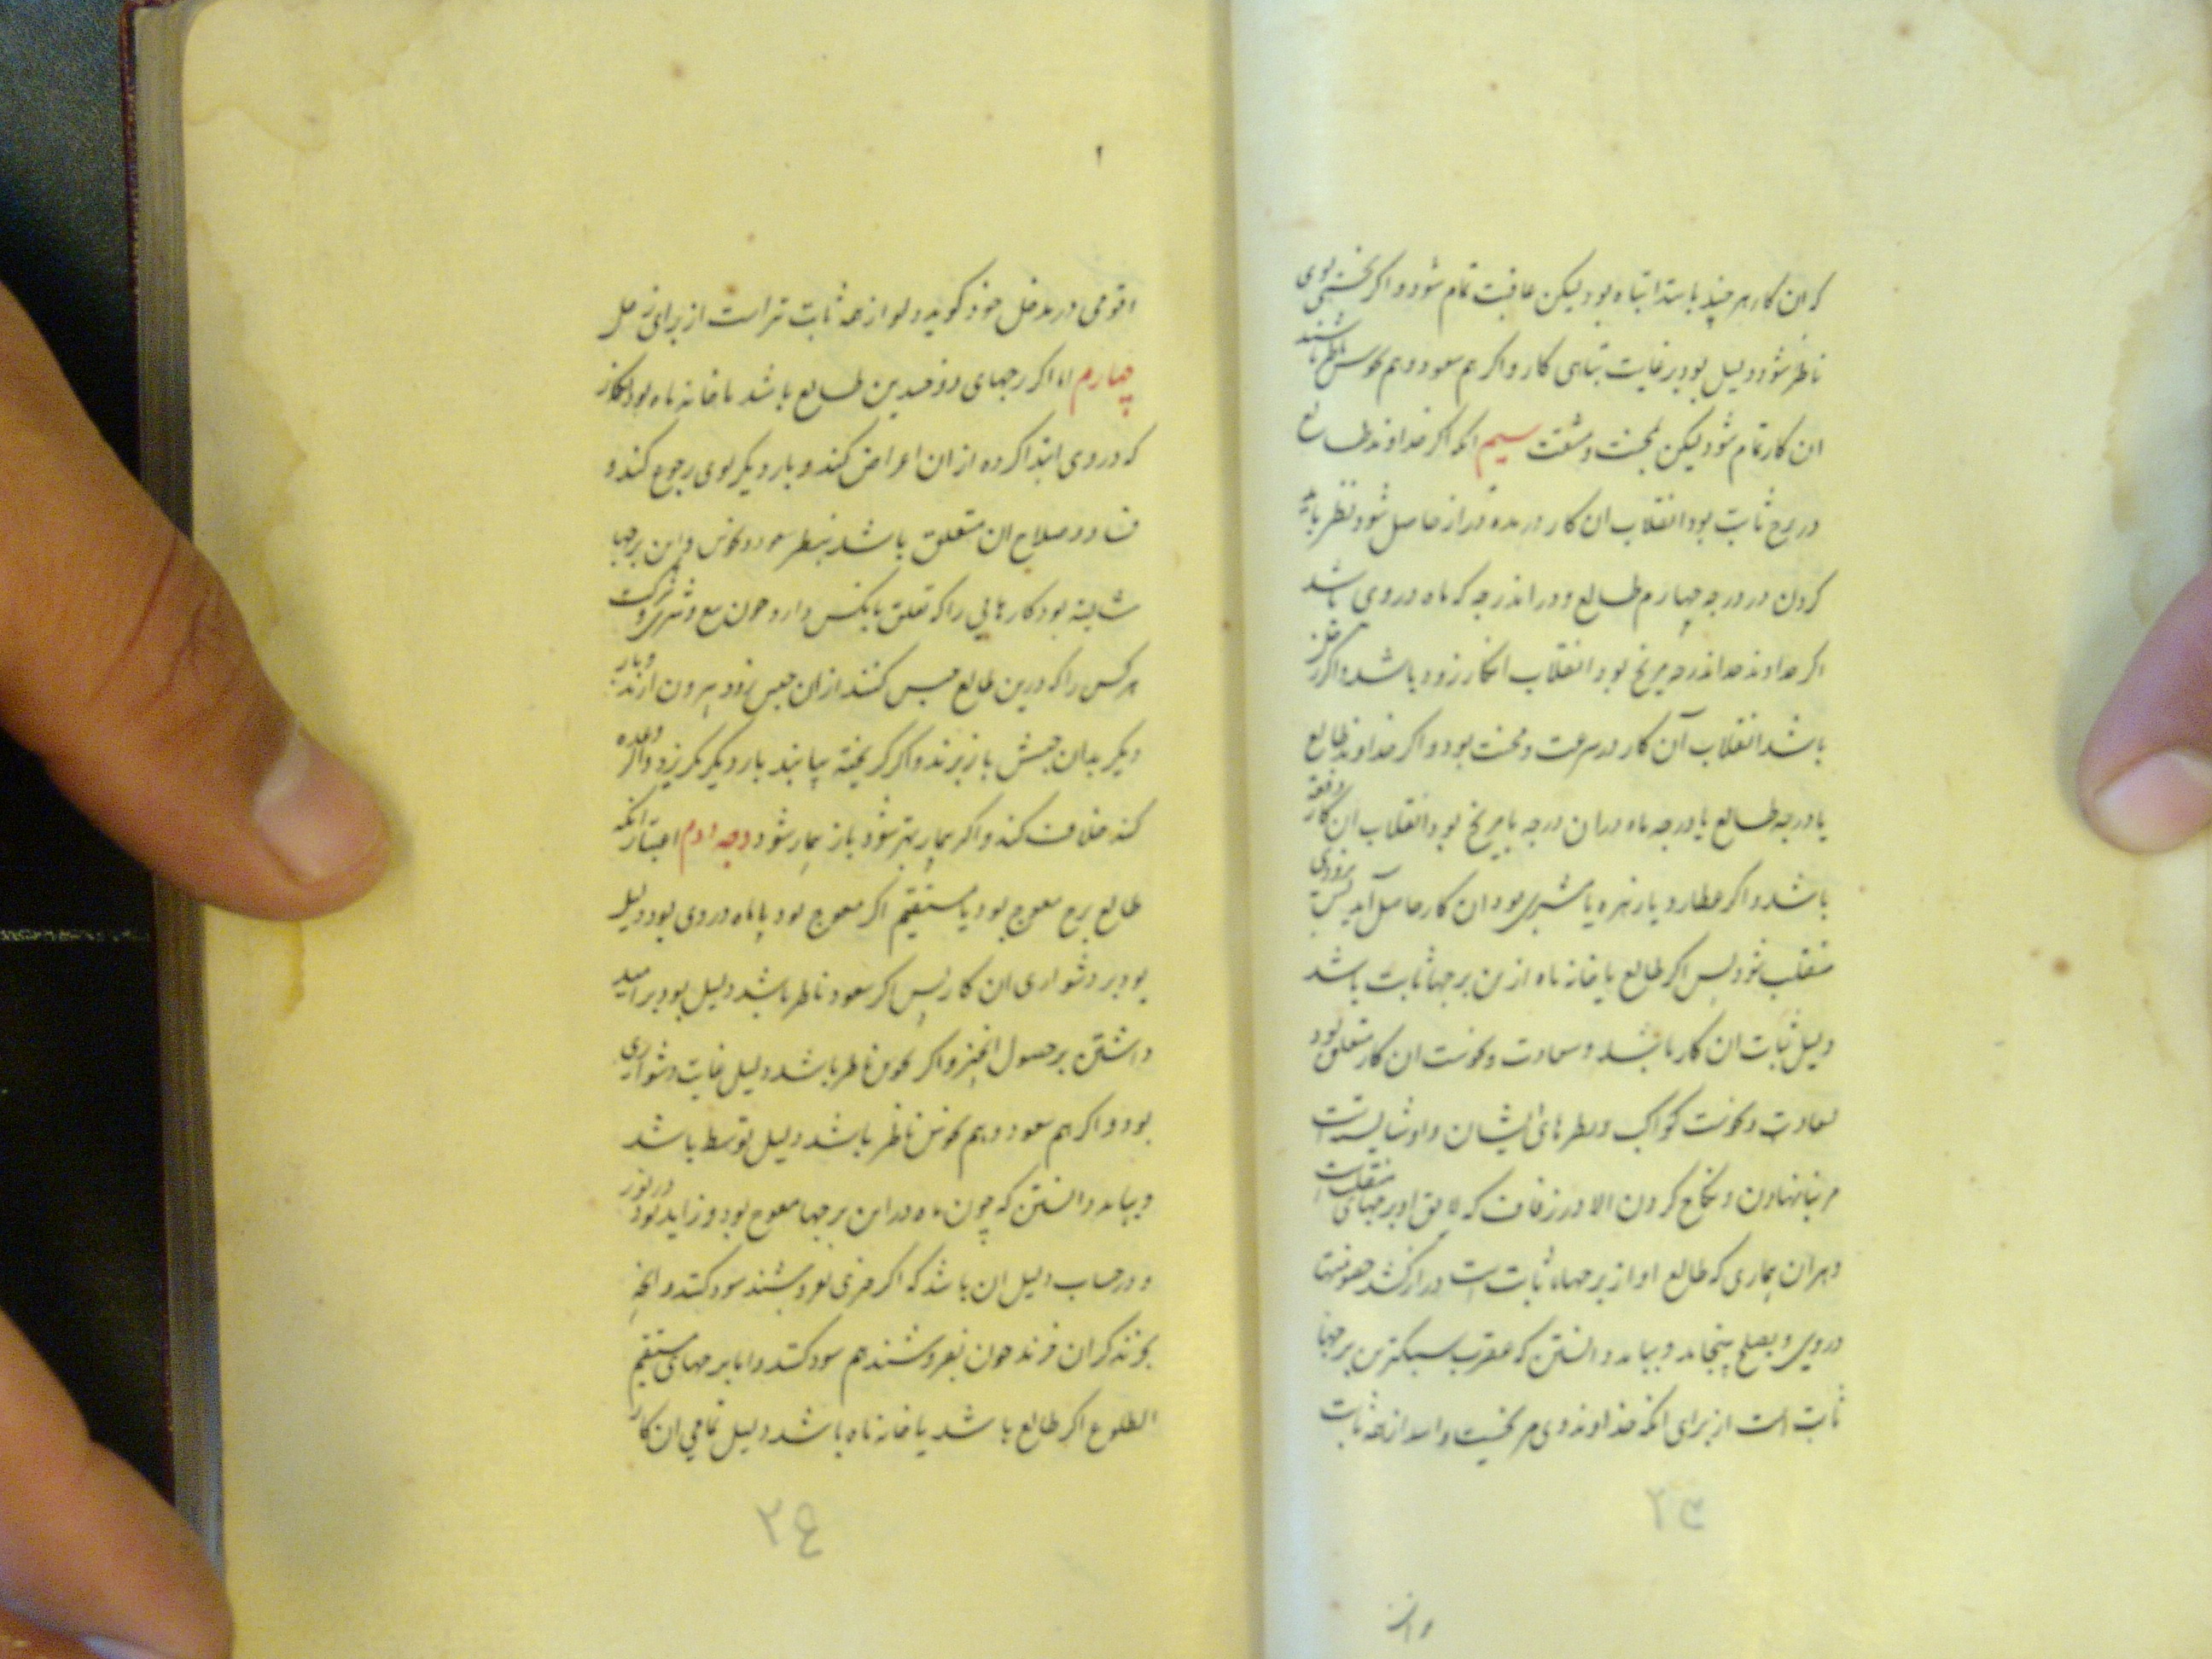 که ان کار هر چند بابتدا تباه بود لیکن عاقبت تمام شود و اگر نحسی بوی
ناظر شود دلیل بود بر غایت تباهی کار و اگر هم سعود و هم نحوس ناظر باشند
ان کار تمام شود لیکن بمحنت و مشقت سیم انکه اگر خداوند طالع
در برج ثابت بود انقلاب ان کار در مده دراز حاصل شود نظر باید
کردن در درجه چهارم طالع و در اندرجه که ماه در وی باشد
اگر خداوند اندرجه مریخ بود انقلاب انکار زود باشد و اگر زحل
باشد انقلاب آن کار در سرعت و محنت بود و اگر خداوند طالع
یا درجه طالع یا درجه ماه در ان درجه با مریخ بود انقلاب ان کار دفعة
باشد و اگر عطارد یا زهره یا مشتری بود ان کار حاصل آید لیکن بزودی
منقلب شود پس اگر طالع یا خانه ماه ازین برجها ثابت باشد
دلیل ثبات ان کار باشد و سعادت و نحوست ان کار متعلق بود
بسعادت و نحوست کواکب و نظرهای ایشان و او شایسته است
مر بنا نهادن و نکاح کردن الا در زفاف که لایق او برجهای منقلبست
و هران بیماری که طالع او از برجهاء ثابت است دراز کشد خصومتها
در وی بصلح پنجامد و بباید دانستن که عقرب سبکترین برجها
ثابت است از برای انکه خداوند وی مریخست و اسد از همه ثابت
۲۳
و از
اقومی در مدخل خود گوید دلو از همه ثابت تر است از برای زحل
چهارم اما اگر برجهای دو جسدین طالع باشد یا خانه ماه بود انکار
که در وی ابتدا کرده از ان اعراض کند و بار دیگر بوی رجوع کند و
فساد و صلاح ان متعلق باشد بنظر سعود و نحوس و این برجها
شایسته بود کارهایی را که تعلق بدارد چون بیع و شری و شرکت
هر کس را که درین طالع حبس کنند ازان حبس زود بیرون ارند و بار
دیگر بدان حبسش باز برند و اگر گریخته بیابند بار دیگر بگریزد و اگر وعده
کند خلاف کند و اگر بیمار بهتر شود باز بیمار شود وجه دوم اعتبار انکه
طالع برج معوج بود یا مستقیم اگر معوج بود یا ماه در وی بود دلیل
بود بر دشواری ان کار پس اگر سعود ناظر باشد دلیل بود بر امید
داشتن بر حصول انچیز و اگر نحوس ناظر باشد دلیل غایت دشواری
بود و اگر هم سعود و هم نحوس ناظر باشد دلیل توسط باشد
و بباید دانستن که چون ماه در این برجها معوج بود و زاید بود در نور
و در حساب دلیل ان باشد که اگر چیزی بفروشند سود کند و انچه
بخرند گران خرند چون بفروشند هم سود کند و اما برجهای مستقیم
الطلوع اگر طالع باشد یا خانه ماه باشد دلیل تمامی ان کار
۲۴